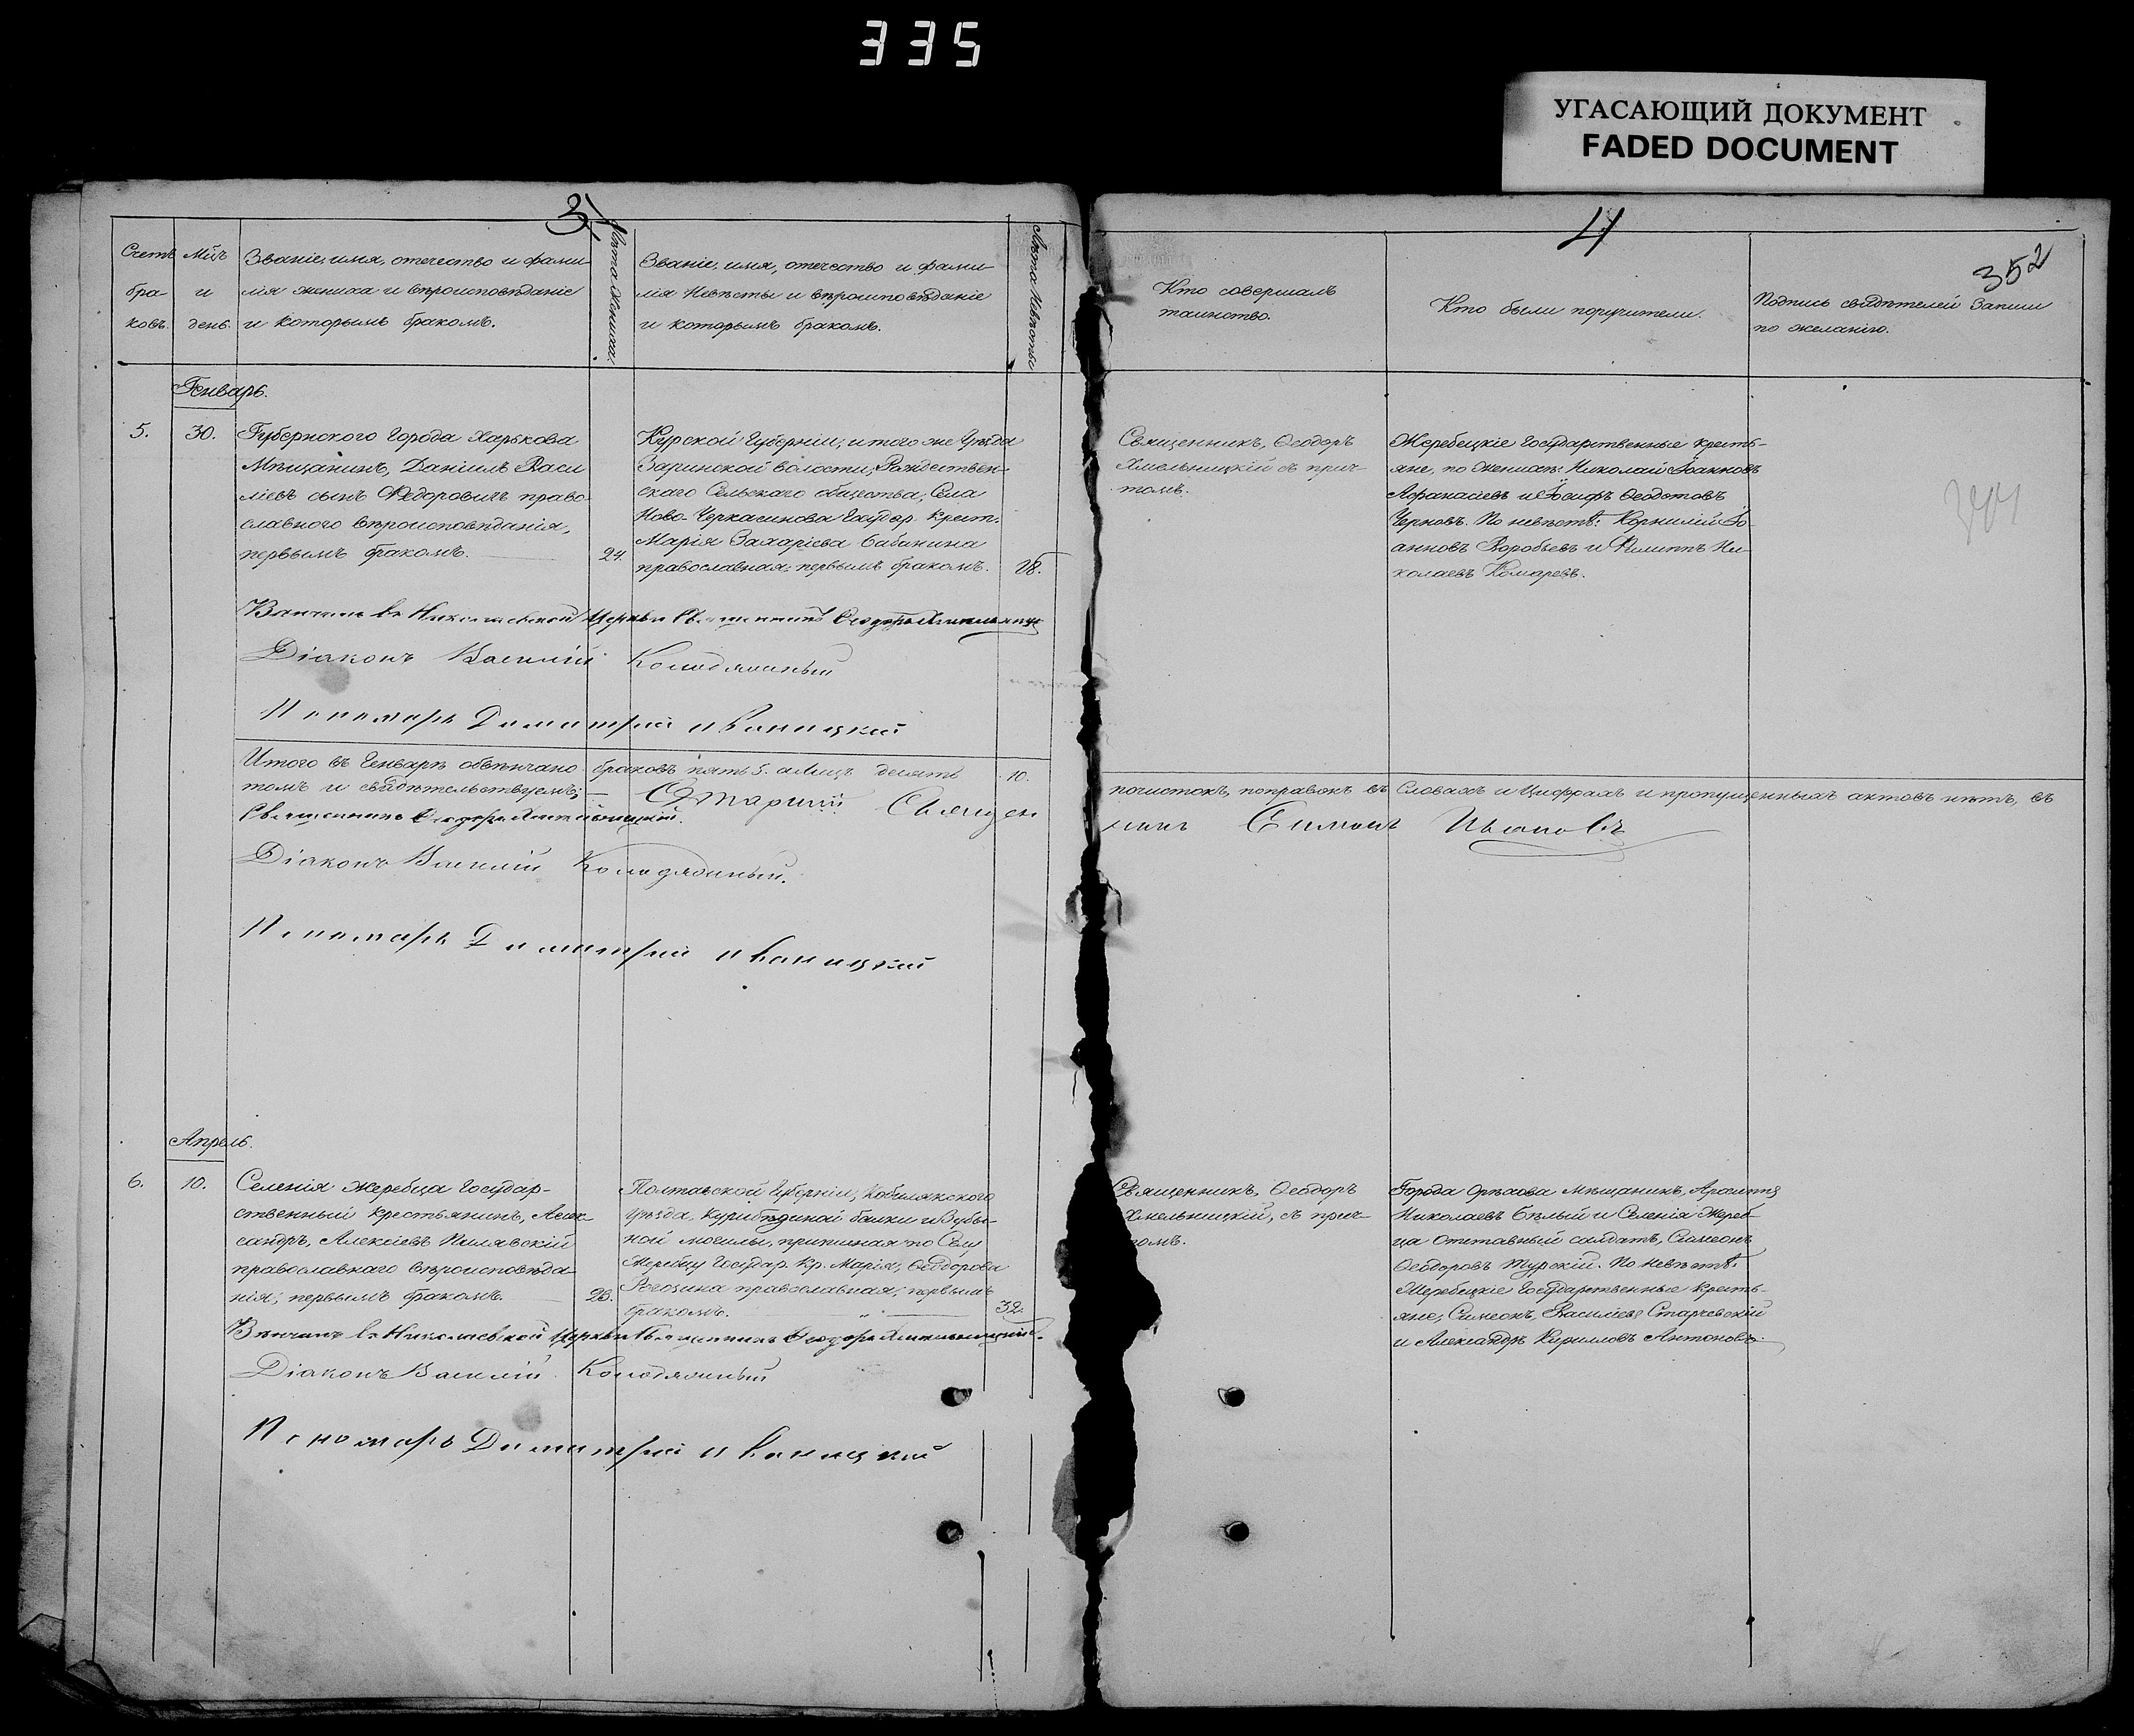 335
УГАСАЮЩИЙ ДОКУМЕНТ
FADED DOCUMENT
3
4
352
Счетъ
бра-
ковъ.
Мѣц
и
день.
Званіе, имя, отечество и фами-
лія жениха и вѣроисповѣданіе
и которымъ бракомъ.
Лѣта Жениха.
Званіе, имя, отечество и фами-
лія Невѣсты и вѣроисповѣданіе
и которымъ бракомъ.
Лѣта Невѣсты
Кто совершалъ
таинство.
Кто были поручители.
Подпись свидѣтелей записи
по желанію.
Генварь.
5.
30.
Губернского Города Харькова
Мѣщанинъ, Даніилъ Васи
ліевъ сынъ Федоровичъ право-
славного вѣроисповѣданія,
первымъ бракомъ.
24.
Курской Губерніи, и того же Уѣзда
Рождествен-
скаго Сельскаго общества, Села
Ново-Черкасинова Государ. Крест.
Марія Захаріева Бабанина
православная; первымъ бракомъ.
18.
Священникъ, Ѳеодоръ
Хмельницкій съ прич-
томъ.
Жеребецкіе Государственные кресть-
яне, по женихѣ: Николай Іоанновъ
Афанасіевъ и Іосифъ Ѳеодотовъ
Черновъ. По невѣстѣ: Корнилій Іо-
анновъ Воробьевъ и Филиппъ Ни-
колаевъ Комаревъ.
Вѣнчалъ въ Николаевской Церкви Священникъ Ѳеодоръ Хмельницкій
Діаконъ Василій Колодяжный
Пономарь Димитрій Иваницкій
Итого въ Генварѣ обвѣнчано браковъ пять 5. а лицъ десять 10.
почистокъ, поправокъ въ Словахъ и Цифрахъ и пропущенныхъ актовъ нѣтъ, въ
томъ и свидѣтельствуемъ; — Старшій Священ
никъ Симонъ Ивановъ
Священникъ Ѳеодоръ Хмельницкій.
Діаконъ Василій Колодяжный.
Пономарь Димитрій Иваницкій
Апрель.
6.
10.
Селенія Жеребца Государ-
ственный крестьянинъ, Алек-
сандръ, Алексіевъ Пилявскій
православнаго вѣроисповѣда-
нія; первымъ бракомъ.
Полтавской Губерніи, Кобилякского
Уѣзда, балки и Зубы-
ной могилы, приписная по Селу
Жеребцу Государ. Кр. Марія, Ѳеодорова
православная; первымъ
бракомъ.
32.
Священникъ, Ѳеодоръ
Хмельницкій, съ прич-
томъ.
Города Орѣхова Мѣщанинъ,
Николаевъ Бѣлый и Селенія Жереб-
ца Отставный солдатъ, Симеонъ
Ѳеодоровъ Турскій. По Невѣстѣ:
Жеребецкіе Государственные кресть-
яне, Симеонъ, Василіевъ Старчевскій
и Александръ Кирилловъ Антоновъ.
Вѣнчалъ въ Николаевской Церкви Священникъ Ѳеодоръ Хмельницкій.
Діаконъ Василій Колодяжный
Пономарь Димитрій Иваницкій